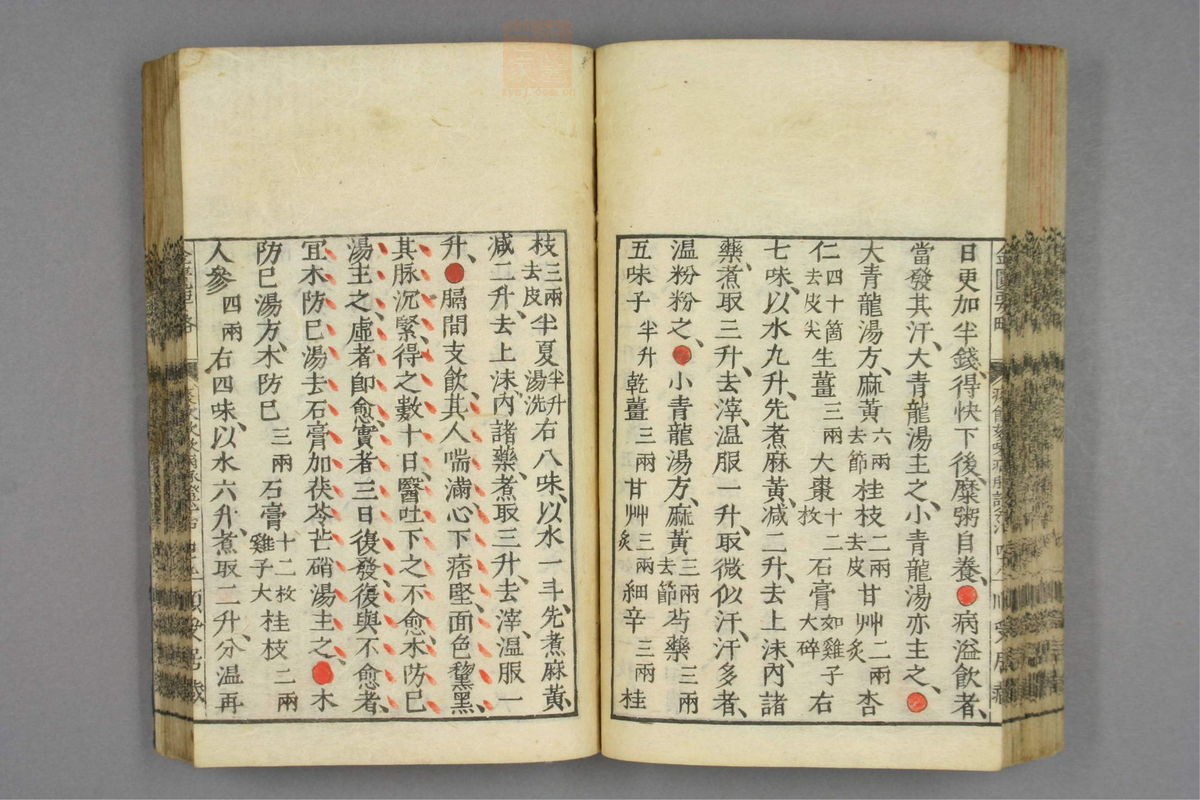 日更加半錢、得快下後、糜粥自養、●病溢飲者、
當發其汗、大青龍湯主之、小青龍湯亦主之、●
大青龍湯方、麻黃六兩去節桂枝二兩去皮甘艸二兩炙杏
仁四十箇去皮尖生薑三兩大棗十二枚石膏如雞子大碎右
七味、以水九升、先煮麻黃、减二升、去上沫、內諸
藥、煮取三升、去滓、温服一升、取微似汗、汗多者、
温粉粉之、●小青龍湯方、麻黃三兩去節芍藥三兩
五味子半升乾薑三兩甘艸三兩炙細辛三兩桂
枝三兩去皮半夏半升湯洗右八味、以水一斗、先煮麻黃、
减二升、去上沫、內諸藥、煮取三升、去滓、温服一
升、●膈間支飲、其人喘滿、心下痞堅、面色黧黑、
其脉沉緊、得之數十日、醫吐下之不愈、木防巳
湯主之、虛者卽愈、實者三日復發、復與不愈者、
宜木防巳湯去石膏加茯苓芒硝湯主之、●木
防巳湯方、木防巳三兩石膏十二枚雞子大桂枝二兩
人參四兩右四味、以水六升、煮取二升、分温再